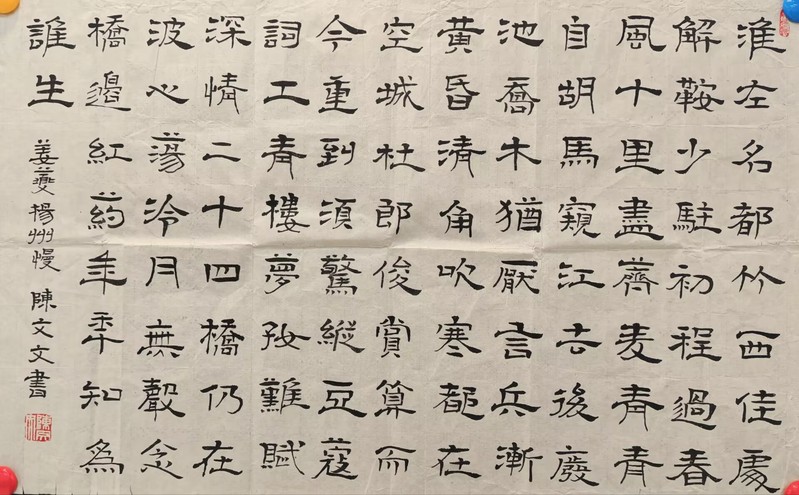 淮左名都竹西佳處
解鞍少駐初程過春
風十里盡薺麦青青
自胡馬窺江去後廢
池喬木猶厭言兵漸
黄昏清角吹寒都在
空城杜郎俊賞算而
今重到須驚縱豆蔻
詞工青樓夢好難賦
深情二十四橋仍在
波心蕩冷月無聲念
橋邊紅葯年年知為
誰生
姜夔楊州慢 陳文文書